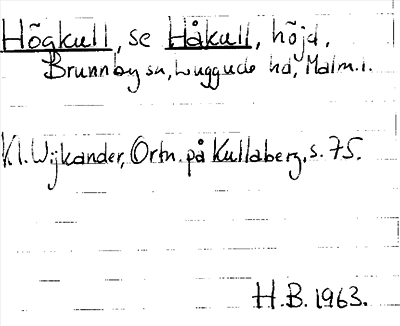 Högkull, se Håkull, höjd,
Brunnby sn, Luggude hd, Malm.l.
Kl. Wijkander, Ortn. på Kullaberg, s. 75.
H.B. 1963.